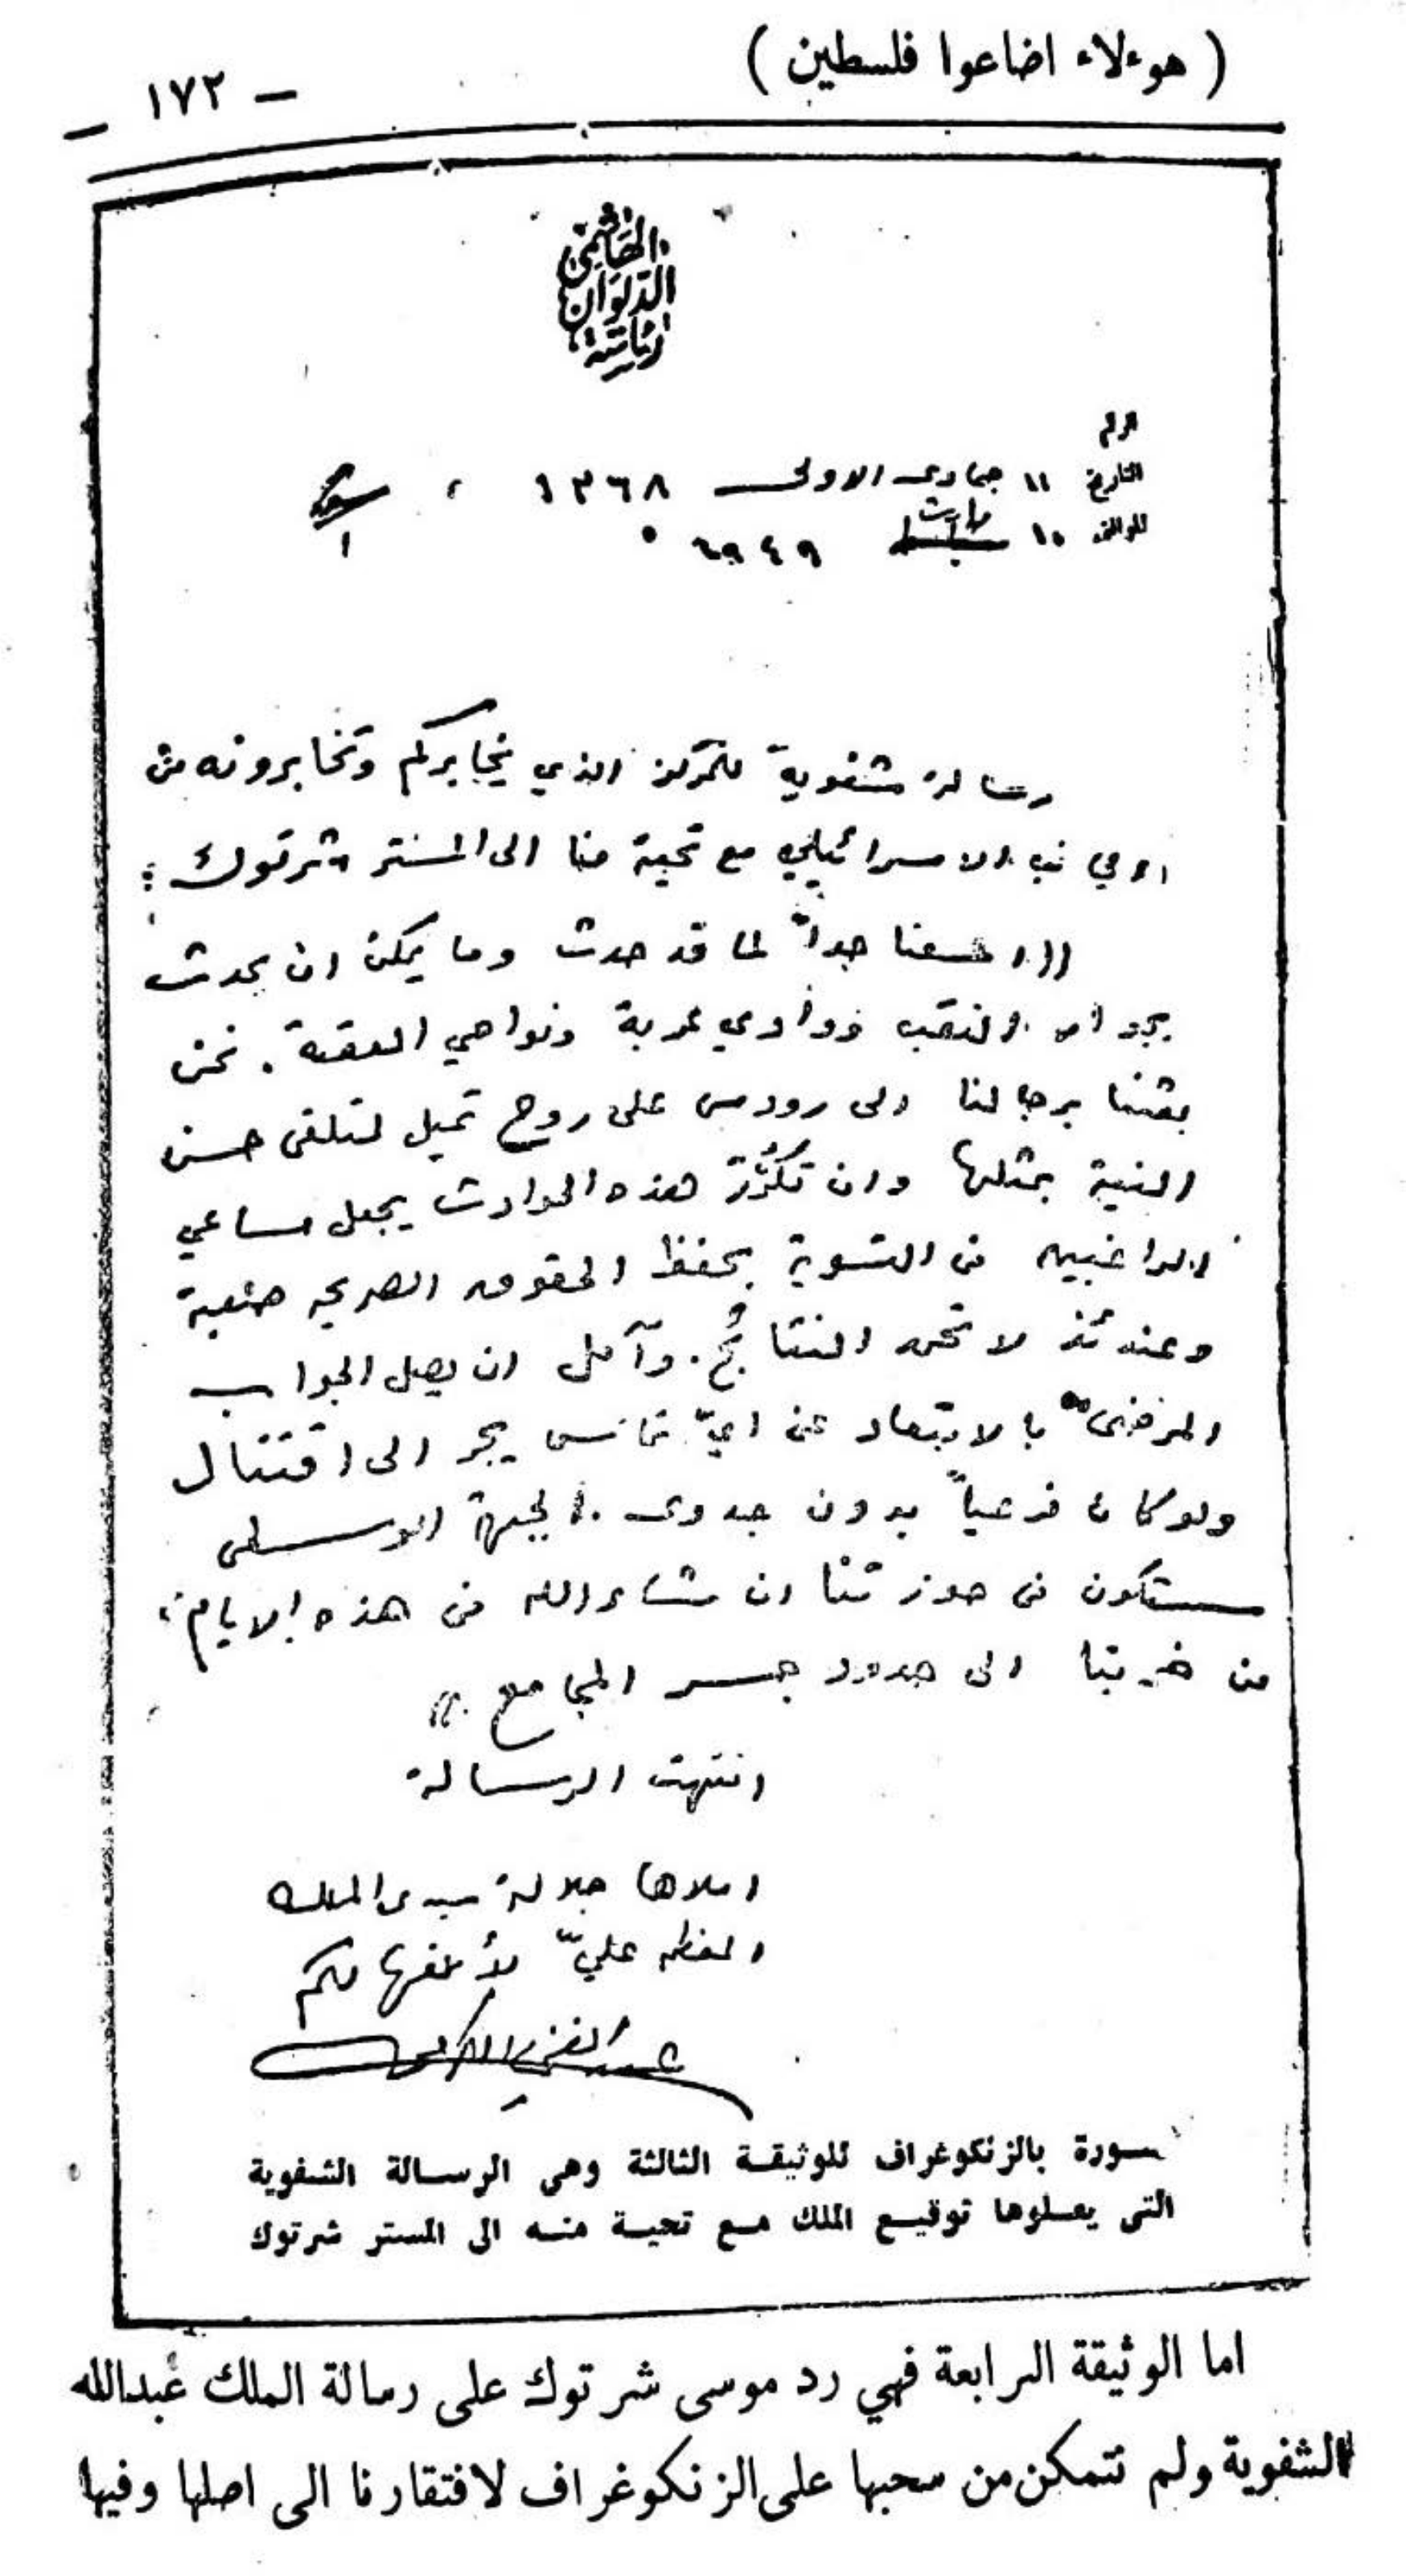 ( هوءلاء اضاعوا فلسطين )
- ١٧٢ -
الهاشمي
الديوان
رئاسة
الرقم
التاريخ ١١ جمادى الاولى ١٣٦٨
مارت
الموافق ١٠ شباط ١٩٤٩
رسالة شفوية للمركز الذي يخابركم وتخابرونه من
الجانب الاسرائيلي مع تحية منا الى المستر شرتوك :
((اسفنا جداً لما قد حدث وما يمكن ان يحدث
بجوار النقب ووادي عربة ونواحي العقبة . نحن
بعثنا برجالنا الى رودس على روح تميل لتلقى حسن
النية بمثلها وان تكرّر هذه الحوادث يجعل مساعي
الراغبين في التسوية بحفظ الحقوق الصريحه صعبة
وعندئذ لا تحمد النتائج . وآمل ان يصل الجواب
المرضى بالابتعاد عن ايّ تماس يجر الى اقتتال
ولو كان فرعياً بدون جدوى . الجبهة الوسطى
ستكون في حوزتنا ان شاء الله في هذه الايام ،
من غربنا الى حدود جسر المجامع . ))
انتهت الرسالة
املاها جلالة سيدي الملك
المعظم عليّ لأبلغها لكم
عبد الغني الكرمي
صورة بالزنكوغراف للوثيقة الثالثة وهى الرسالة الشفوية
التى يعلوها توقيع الملك مع تحية منه الى المستر شرتوك
اما الوثيقة الرابعة فهي رد موسى شرتوك على رسالة الملك عبدالله
الشفوية ولم نتمكن من سحبها على الزنكوغراف لافتقارنا الى اصلها وفيها